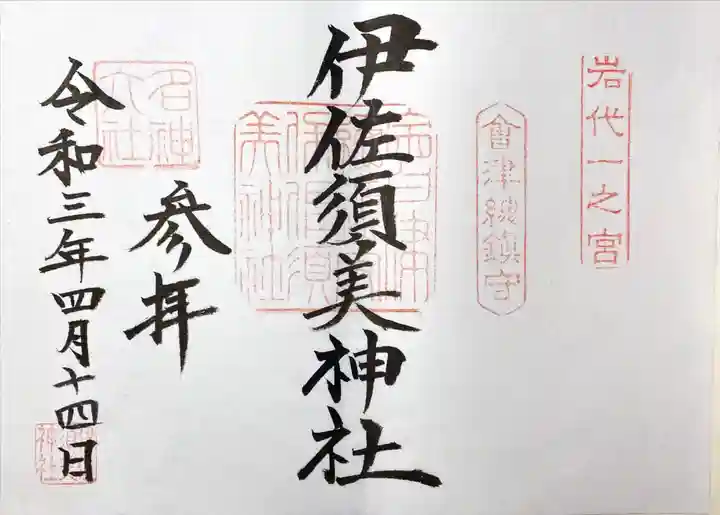 岩代一之宮
會津總鎮守
伊佐須美神社
参拝
名神
大社
令和三年四月十四日